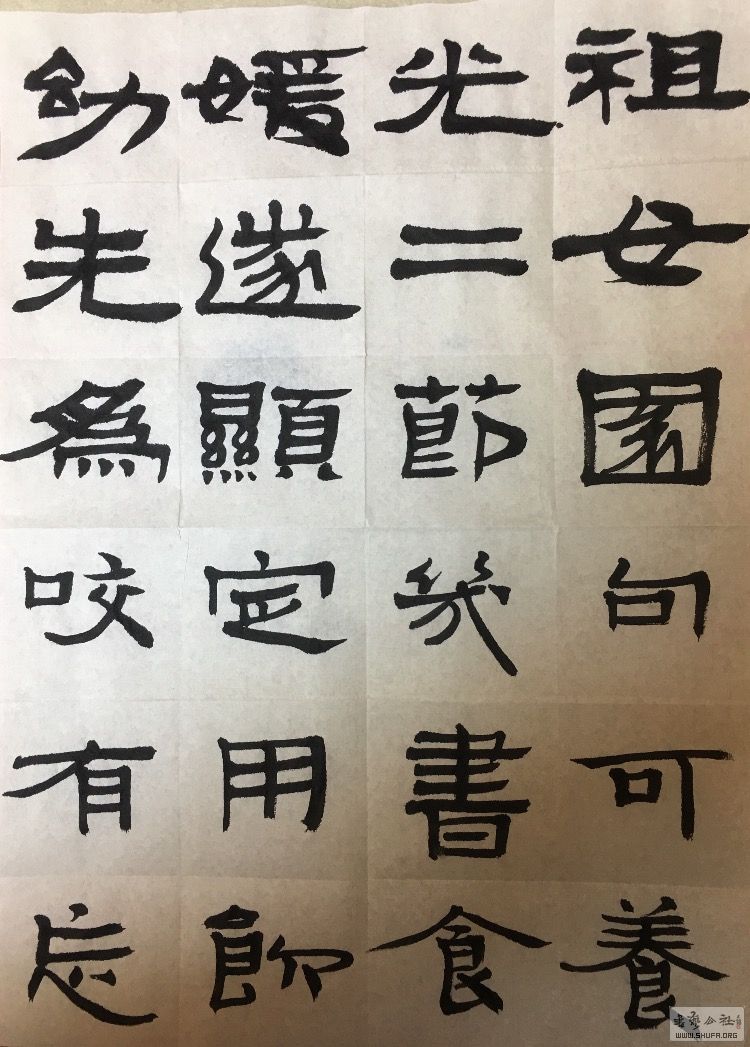 祖女園句可養
光二節書食
媛遂顯定用
幼先為咬有忘
书艺公社
WWW.SHUFA.ORG